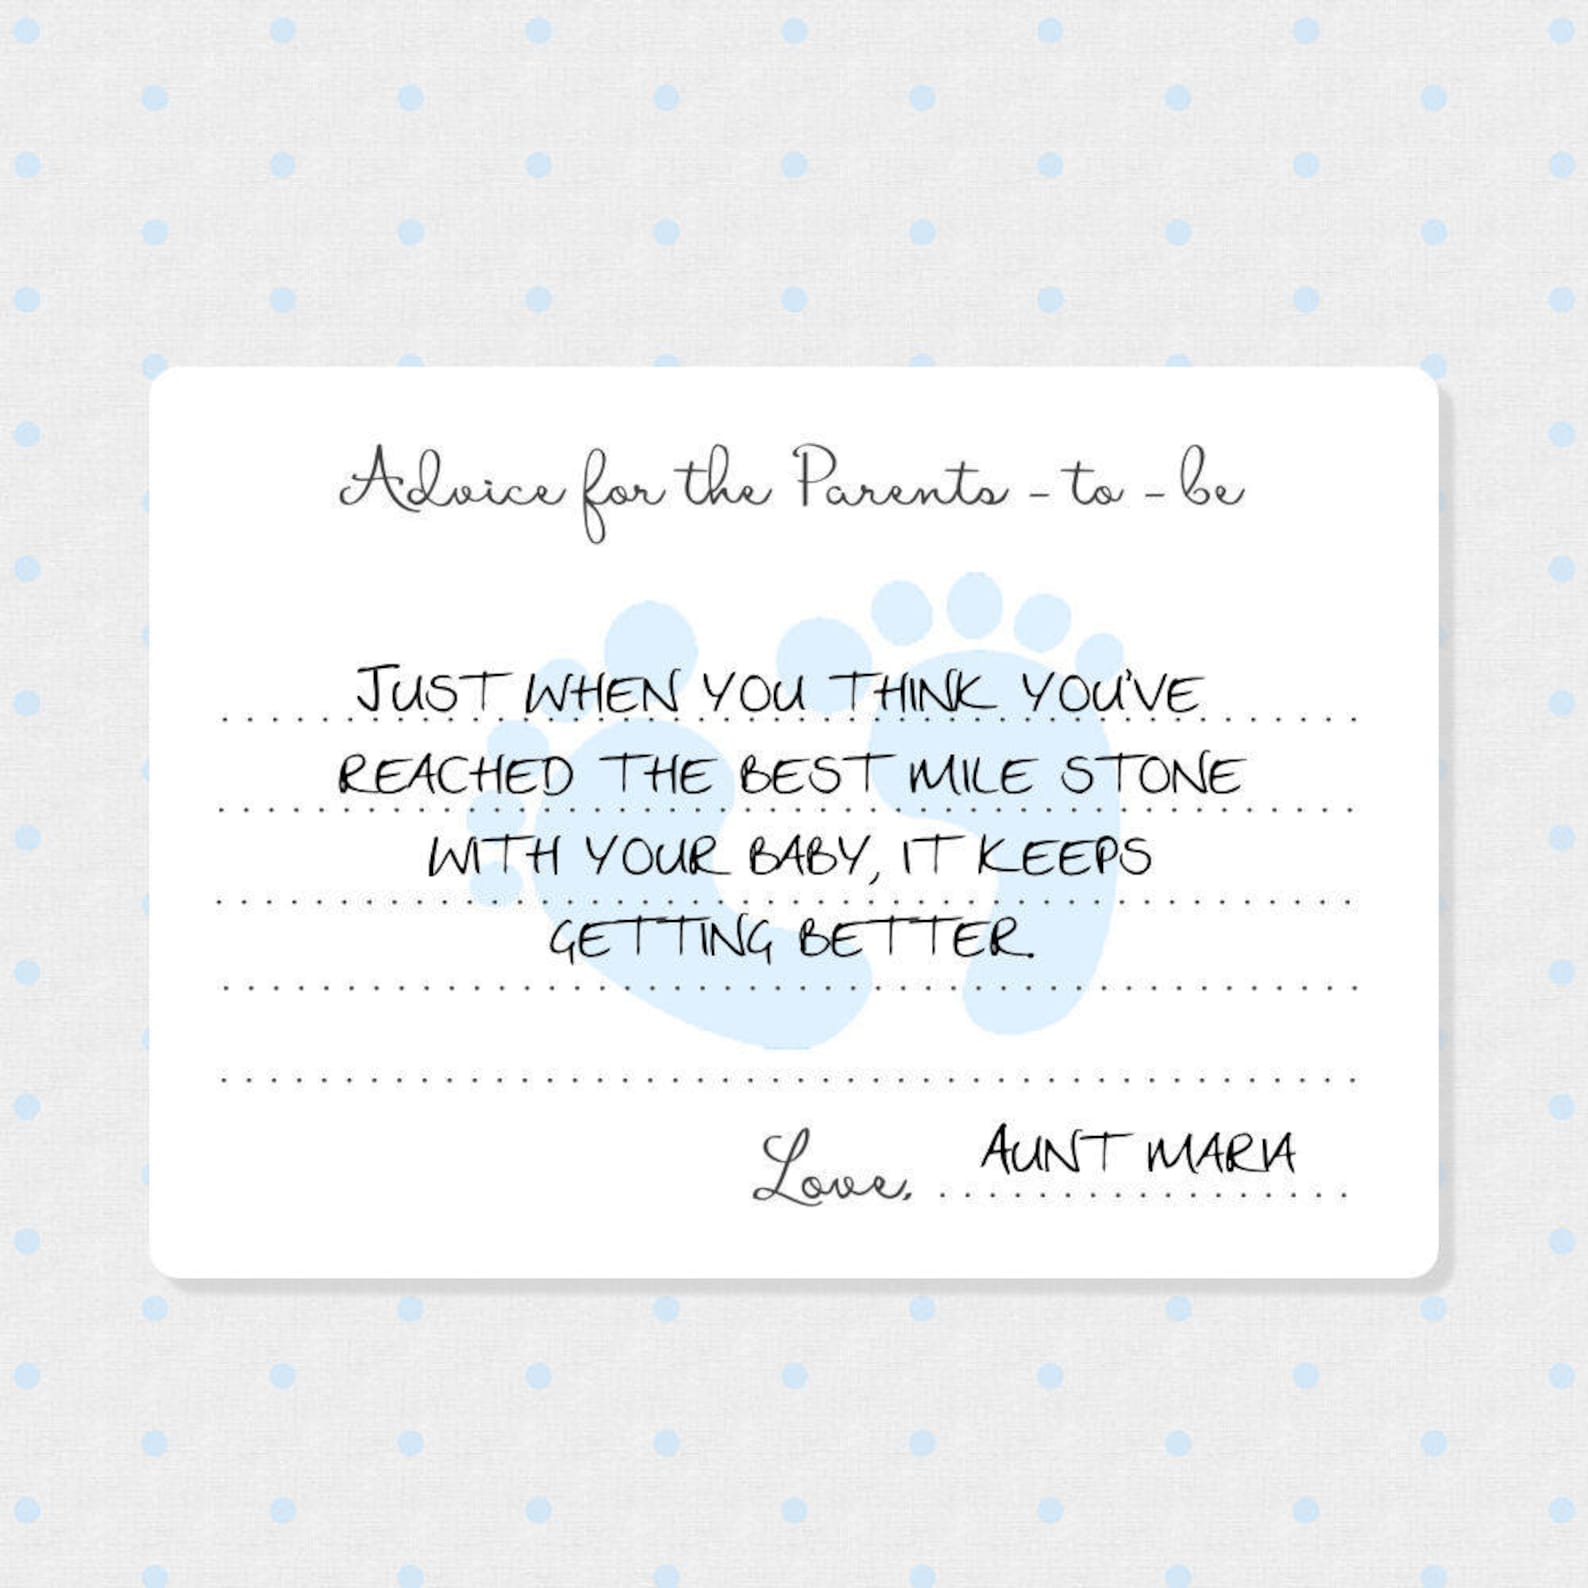 Advice for the Parents - to - be
JUST WHEN YOU THINK YOU'VE
REACHED THE BEST MILE STONE
WITH YOUR BABY, IT KEEPS
GETTING BETTER.
Love, AUNT MARIA